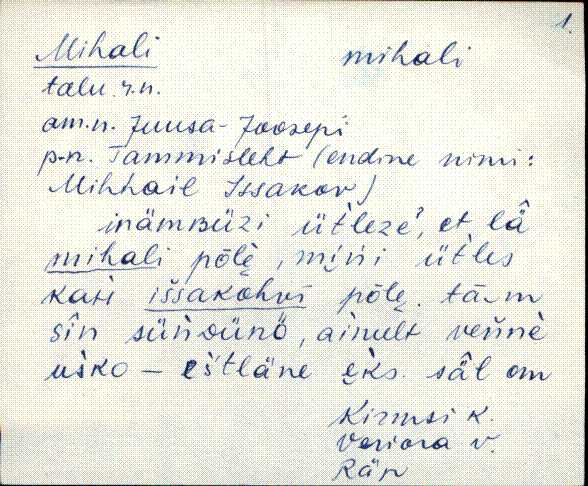 1.
Mihali mihali
talu r.n.
am.n. Juusa-Joosepi
p.n. Tammisleht (endine nimi:
Mihhail Issakov)
inämʙüzi ütleze', et lä̂
mihali põlè, mini ütles
kasi iššakohvi põlè. tä‿m
sîn sündünö, ainult veńnè
usko – eštläne eks sä̂l om
Kirmsi k.
Veriora v.
Räp